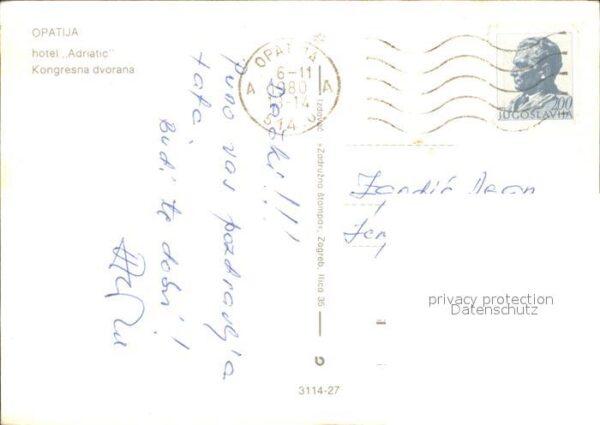 OPATIJA
hotel „Adriatic“
Kongresna dvorana
OPATIJA
6-11
1980
13-14
A A
514
2.00
JUGOSLAVIJA
Dečki!!!
Puno vas pozdravlja
tata.
Budite dobri!
Izdavač »Zadružna štampa«, Zagreb, Ilica 35
privacy protection
Datenschutz
3114-27